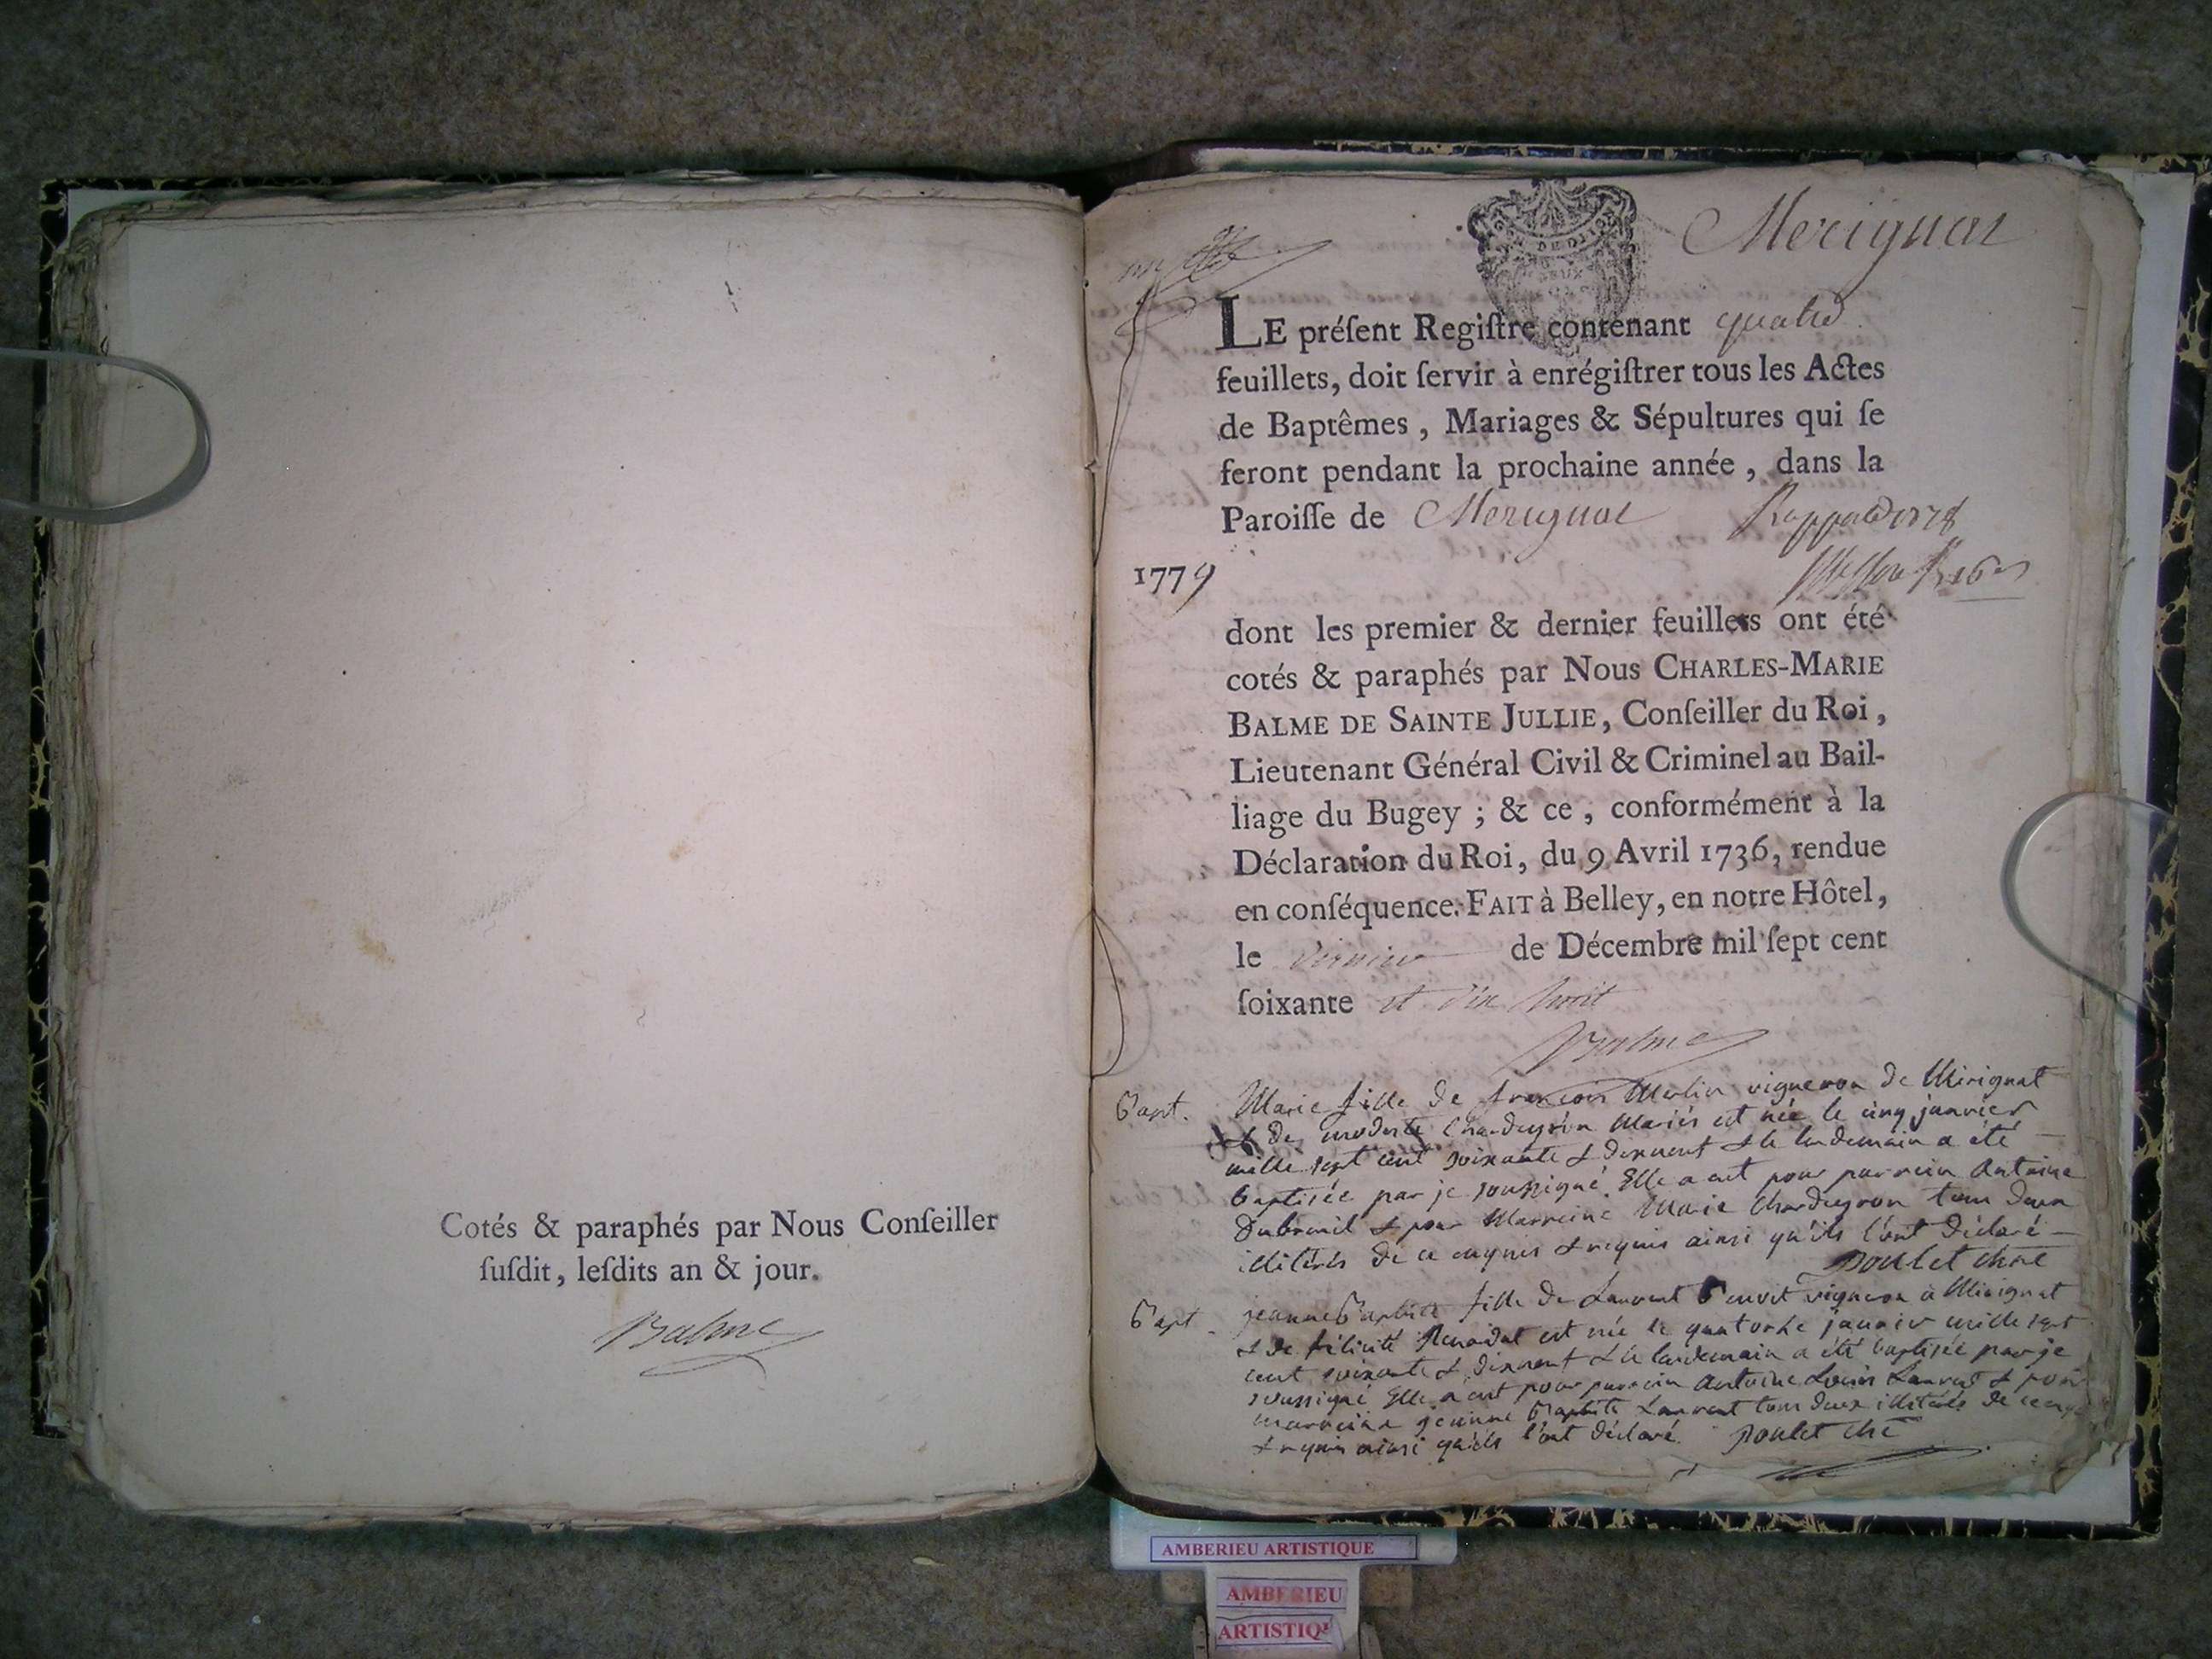 Cotés & paraphés par Nous Conſeiller
ſuſdit, leſdits an & jour.
Balme
Merignat
LE préſent Regiſtre contenant quatre
feuillets, doit ſervir à enrégiſtrer tous les Actes
de Baptêmes, Mariages & Sépultures qui ſe
feront pendant la prochaine année, dans la
Paroiſſe de Merignat
1779
dont les premier & dernier feuillets ont été
cotés & paraphés par Nous CHARLES-MARIE
BALME DE SAINTE JULLIE, Conſeiller du Roi,
Lieutenant Général Civil & Criminel au Bail-
liage du Bugey ; & ce, conformément à la
Déclaration du Roi, du 9 Avril 1736, rendue
en conſéquence. FAIT à Belley, en notre Hôtel,
le dernier de Décembre mil ſept cent
ſoixante et dix huit
Balme
Bapt. Marie fille de françois Merlin vigneron de Mérignat
& de modeste Chardeyron Mariés est née le cinq janvier
mille sept cent soixante & dixneuf & le lendemain a été
baptisée par je soussigné. Elle a eut pour parrein Antoine
Dubreuil & pour Marreine Marie Chardeyron tous deux
illiterés de ce enquis & requis ainsi qu'ils l'ont déclaré
Poulet
Bapt. jeanne Baptiste fille de Laurent vigneron à Mérignat
& de félicité est née le quatorze janvier mille sept
cent soixante & dixneuf & le lendemain a été baptisée par je
soussigné Elle a eut pour parrein Antoine Louis Laurent & pour
marreine jeanne Baptiste Laurent tous deux illiterés de ce
& requis ainsi qu'ils l'ont déclaré Poulet
AMBERIEU ARTISTIQUE
AMBERIEU
ARTISTIQ